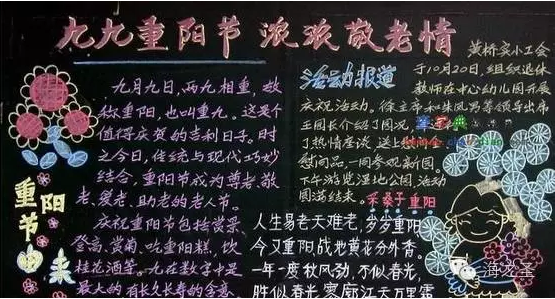 九九重阳节 浓浓敬老情
九月九日，两九相重，故
称重阳，也叫重九。这是个
值得庆贺的吉利日子。时
之今日，传统与现代巧妙
结合，重阳节成为尊老、敬
老、爱老、助老的老人节。
庆祝重阳节包括赏景、
登高、赏菊、吃重阳糕、饮
桂花酒等。九在数字中是
最大的有长久长寿的含意
重阳节由来
活动报道
黄桥实小工会
于10月20日，组织退休
教师在中心幼儿园开展
庆祝活动。徐主席和朱凤男等领导出席
王园长介绍了园况，
了热情座谈，送上
慰问品，一同参观新园。
下午游览湿地公园，活动
圆满结束。
采桑子重阳
人生易老天难老，岁岁重阳
今又重阳战地黄花分外香。
一年一度秋风劲，不似春光
胜似春光寥廓江天万里霜